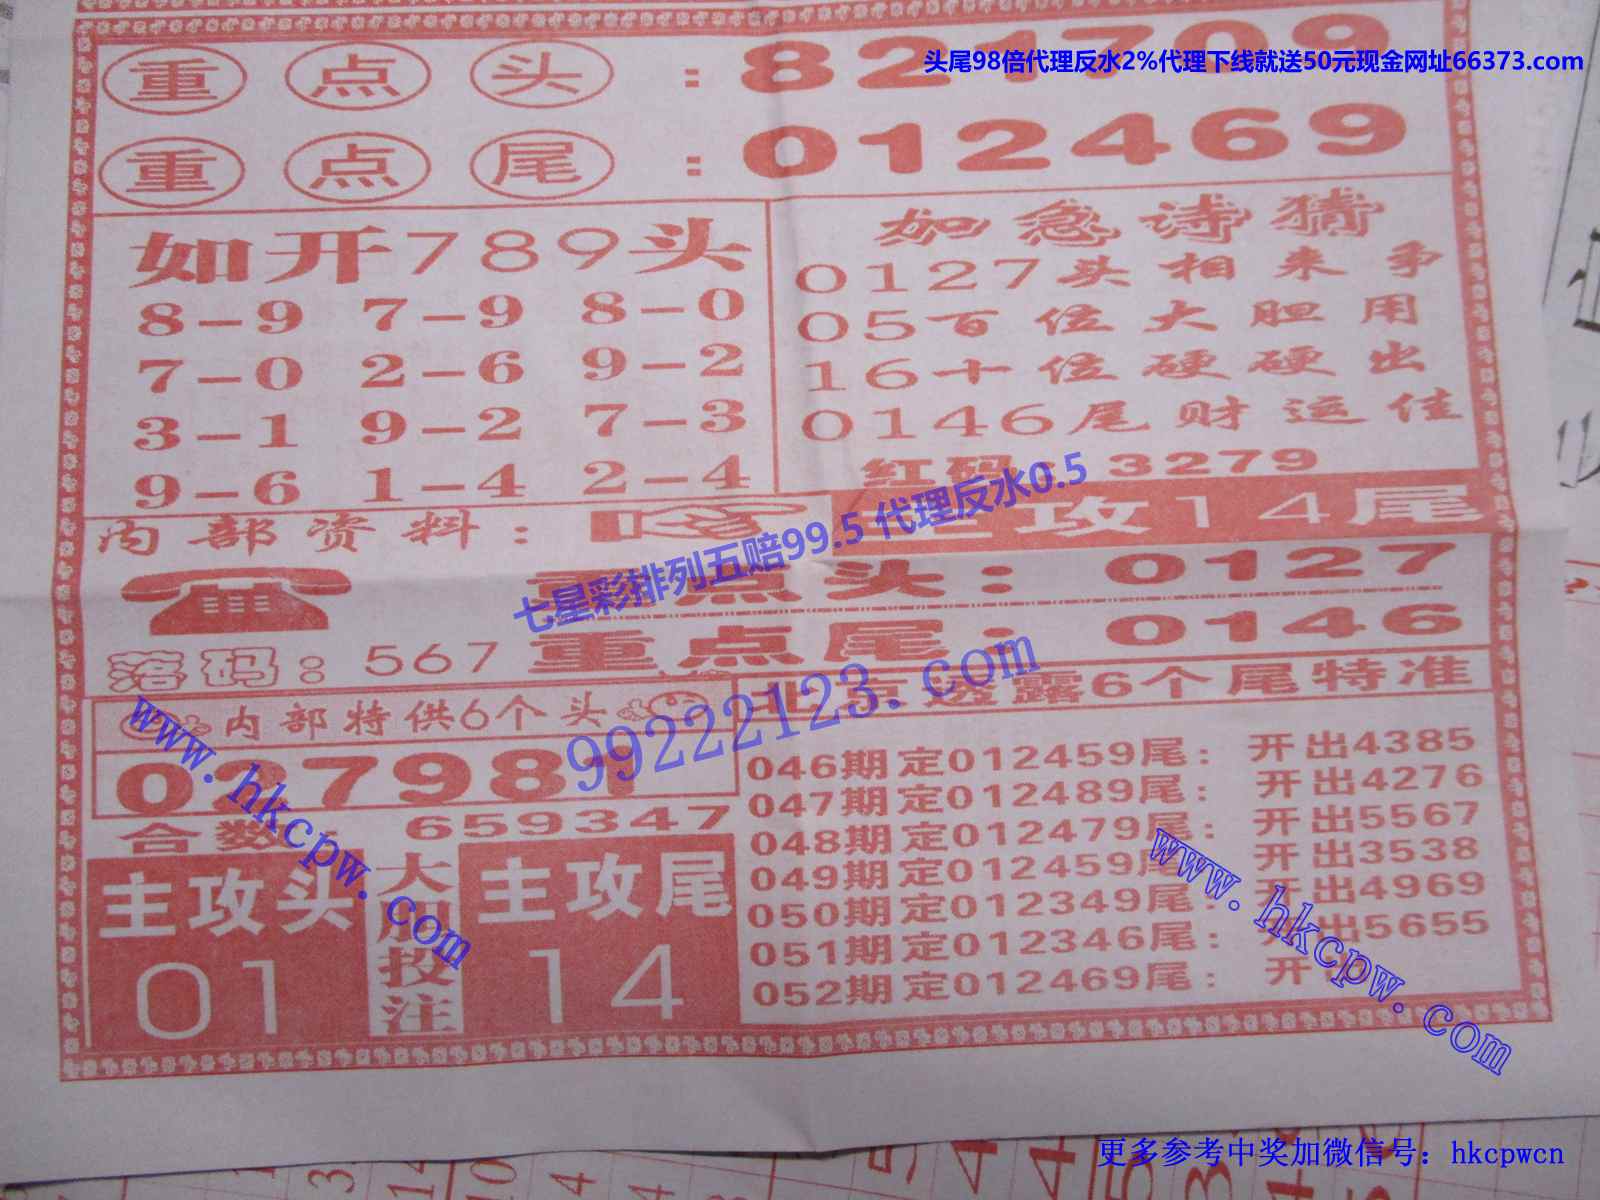 重点头：821709
头尾98倍代理反水2%代理下线就送50元现金网址66373.com
重点尾：012469
如开789头
8-9 7-9 8-0
7-0 2-6 9-2
3-1 9-2 7-3
9-6 1-4 2-4
如急诗猜
0127头相来争
05百位大胆用
16十位硬硬出
0146尾财运佳
红码：3279
内部资料：
主攻14尾
七星彩排列五赔99.5 代理反水0.5
重点头：0127
重点尾：0146
落码：567
内部特供6个头
027981
合数：659347
99222123.com
主攻头
01
大胆投注
主攻尾
14
北京透露6个尾特准
046期定012459尾：开出4385
047期定012489尾：开出4276
048期定012479尾：开出5567
049期定012459尾：开出3538
050期定012349尾：开出4969
051期定012346尾：开出5655
052期定012469尾：开
www.hkcpw.com
www.hkcpw.com
更多参考中奖加微信号：hkcpwcn